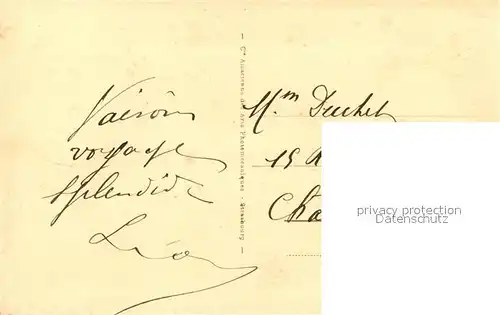 voyage
splendide
Léon
Cie Alsacienne des Arts Photomécaniques - Strasbourg
Mm Duchet
15 R
Cha
privacy protection
Datenschutz